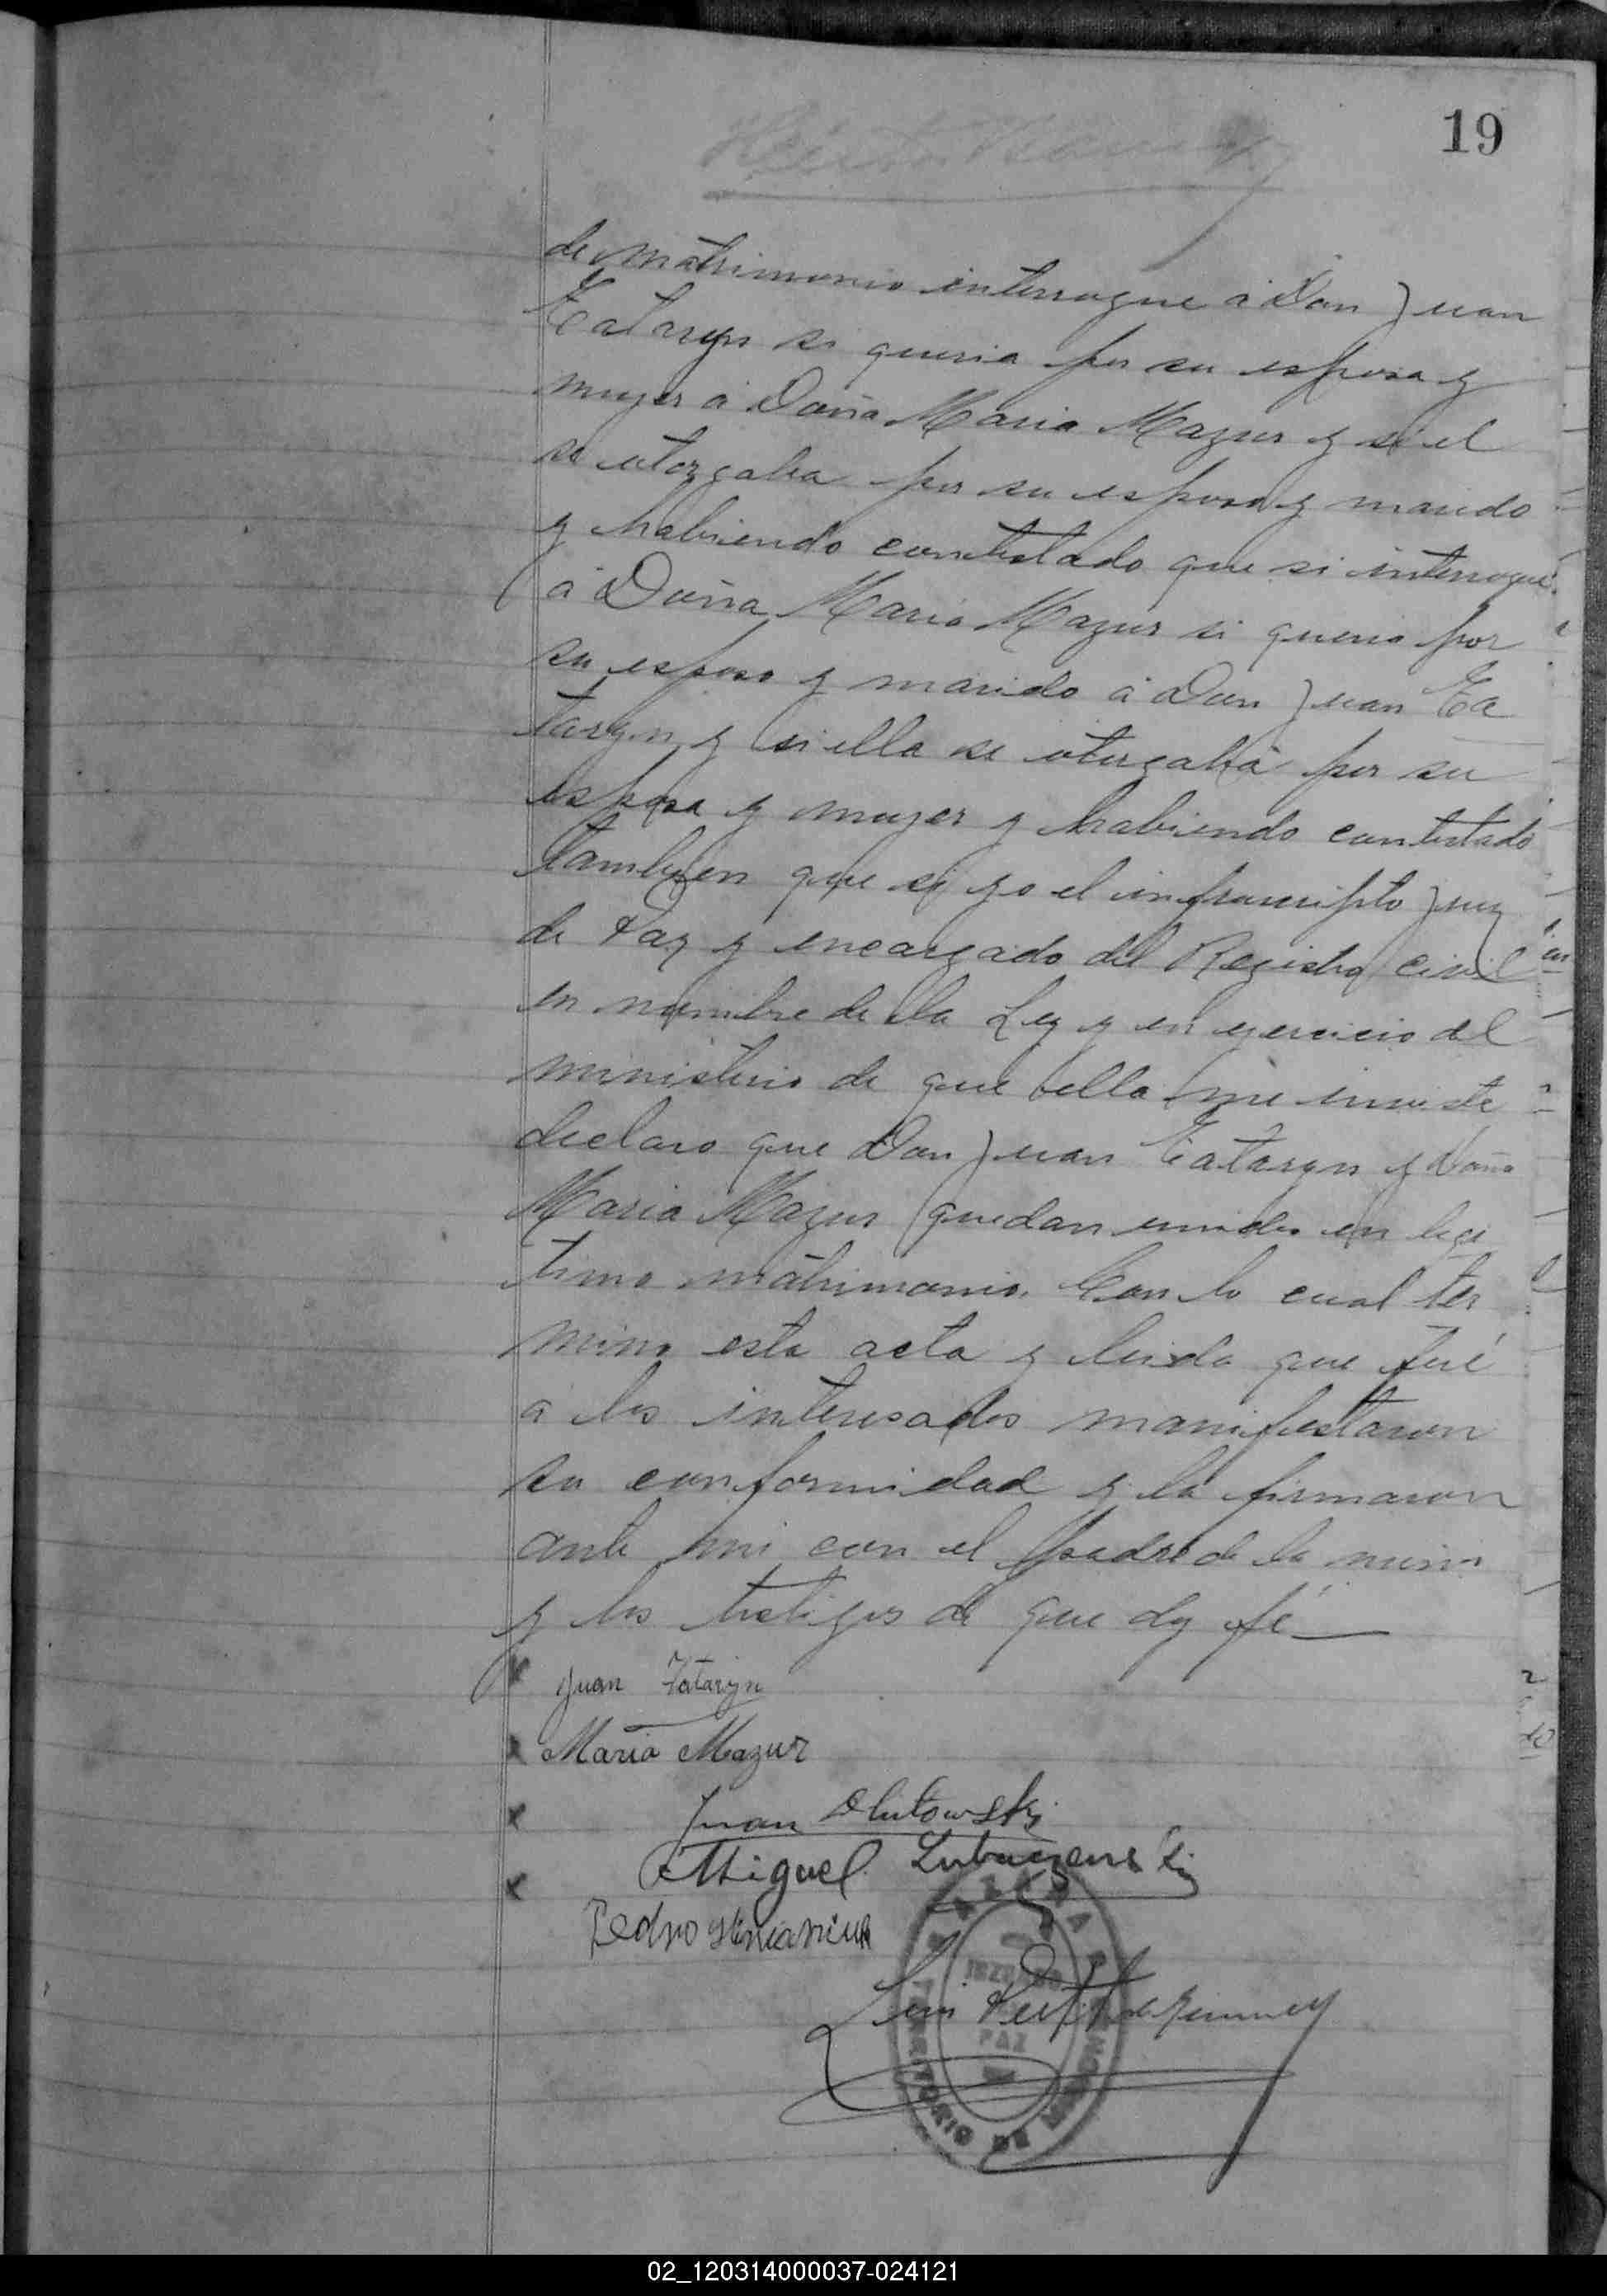 19
de matrimonio interrogue á Don Juan
Tataryn si queria por su esposa y
mujer á Doña Maria Mazur y si el
se otorgaba por su esposo y marido
y habiendo contestado que si interrogué
á Doña Maria Mazur si queria por
su esposo y marido á Don Juan Ta
taryn y si ella se otorgaba por su
esposa y mujer y habiendo contestado
tambien que si yo el infrascripto Juez
de Paz y encargado del Registro Civil
en nombre de la Ley y en ejercicio del
ministerio de que ella me inviste
declaro que Don Juan Tataryn y Doña
Maria Mazur quedan unidos en legi
timo matrimonio. Con lo cual ter
mino esta acta y leida que fué
a los interesados manifestaron
su conformidad y la firmaron
ante mi con el padre de la
y los testigos de que doy fé
Juan Tataryn
Maria Mazur
Juan Dlutowski
Miguel
Pedro
Luis
JUZGADO
PAZ
TERRITORIO DE MISIONES
02_120314000037-024121